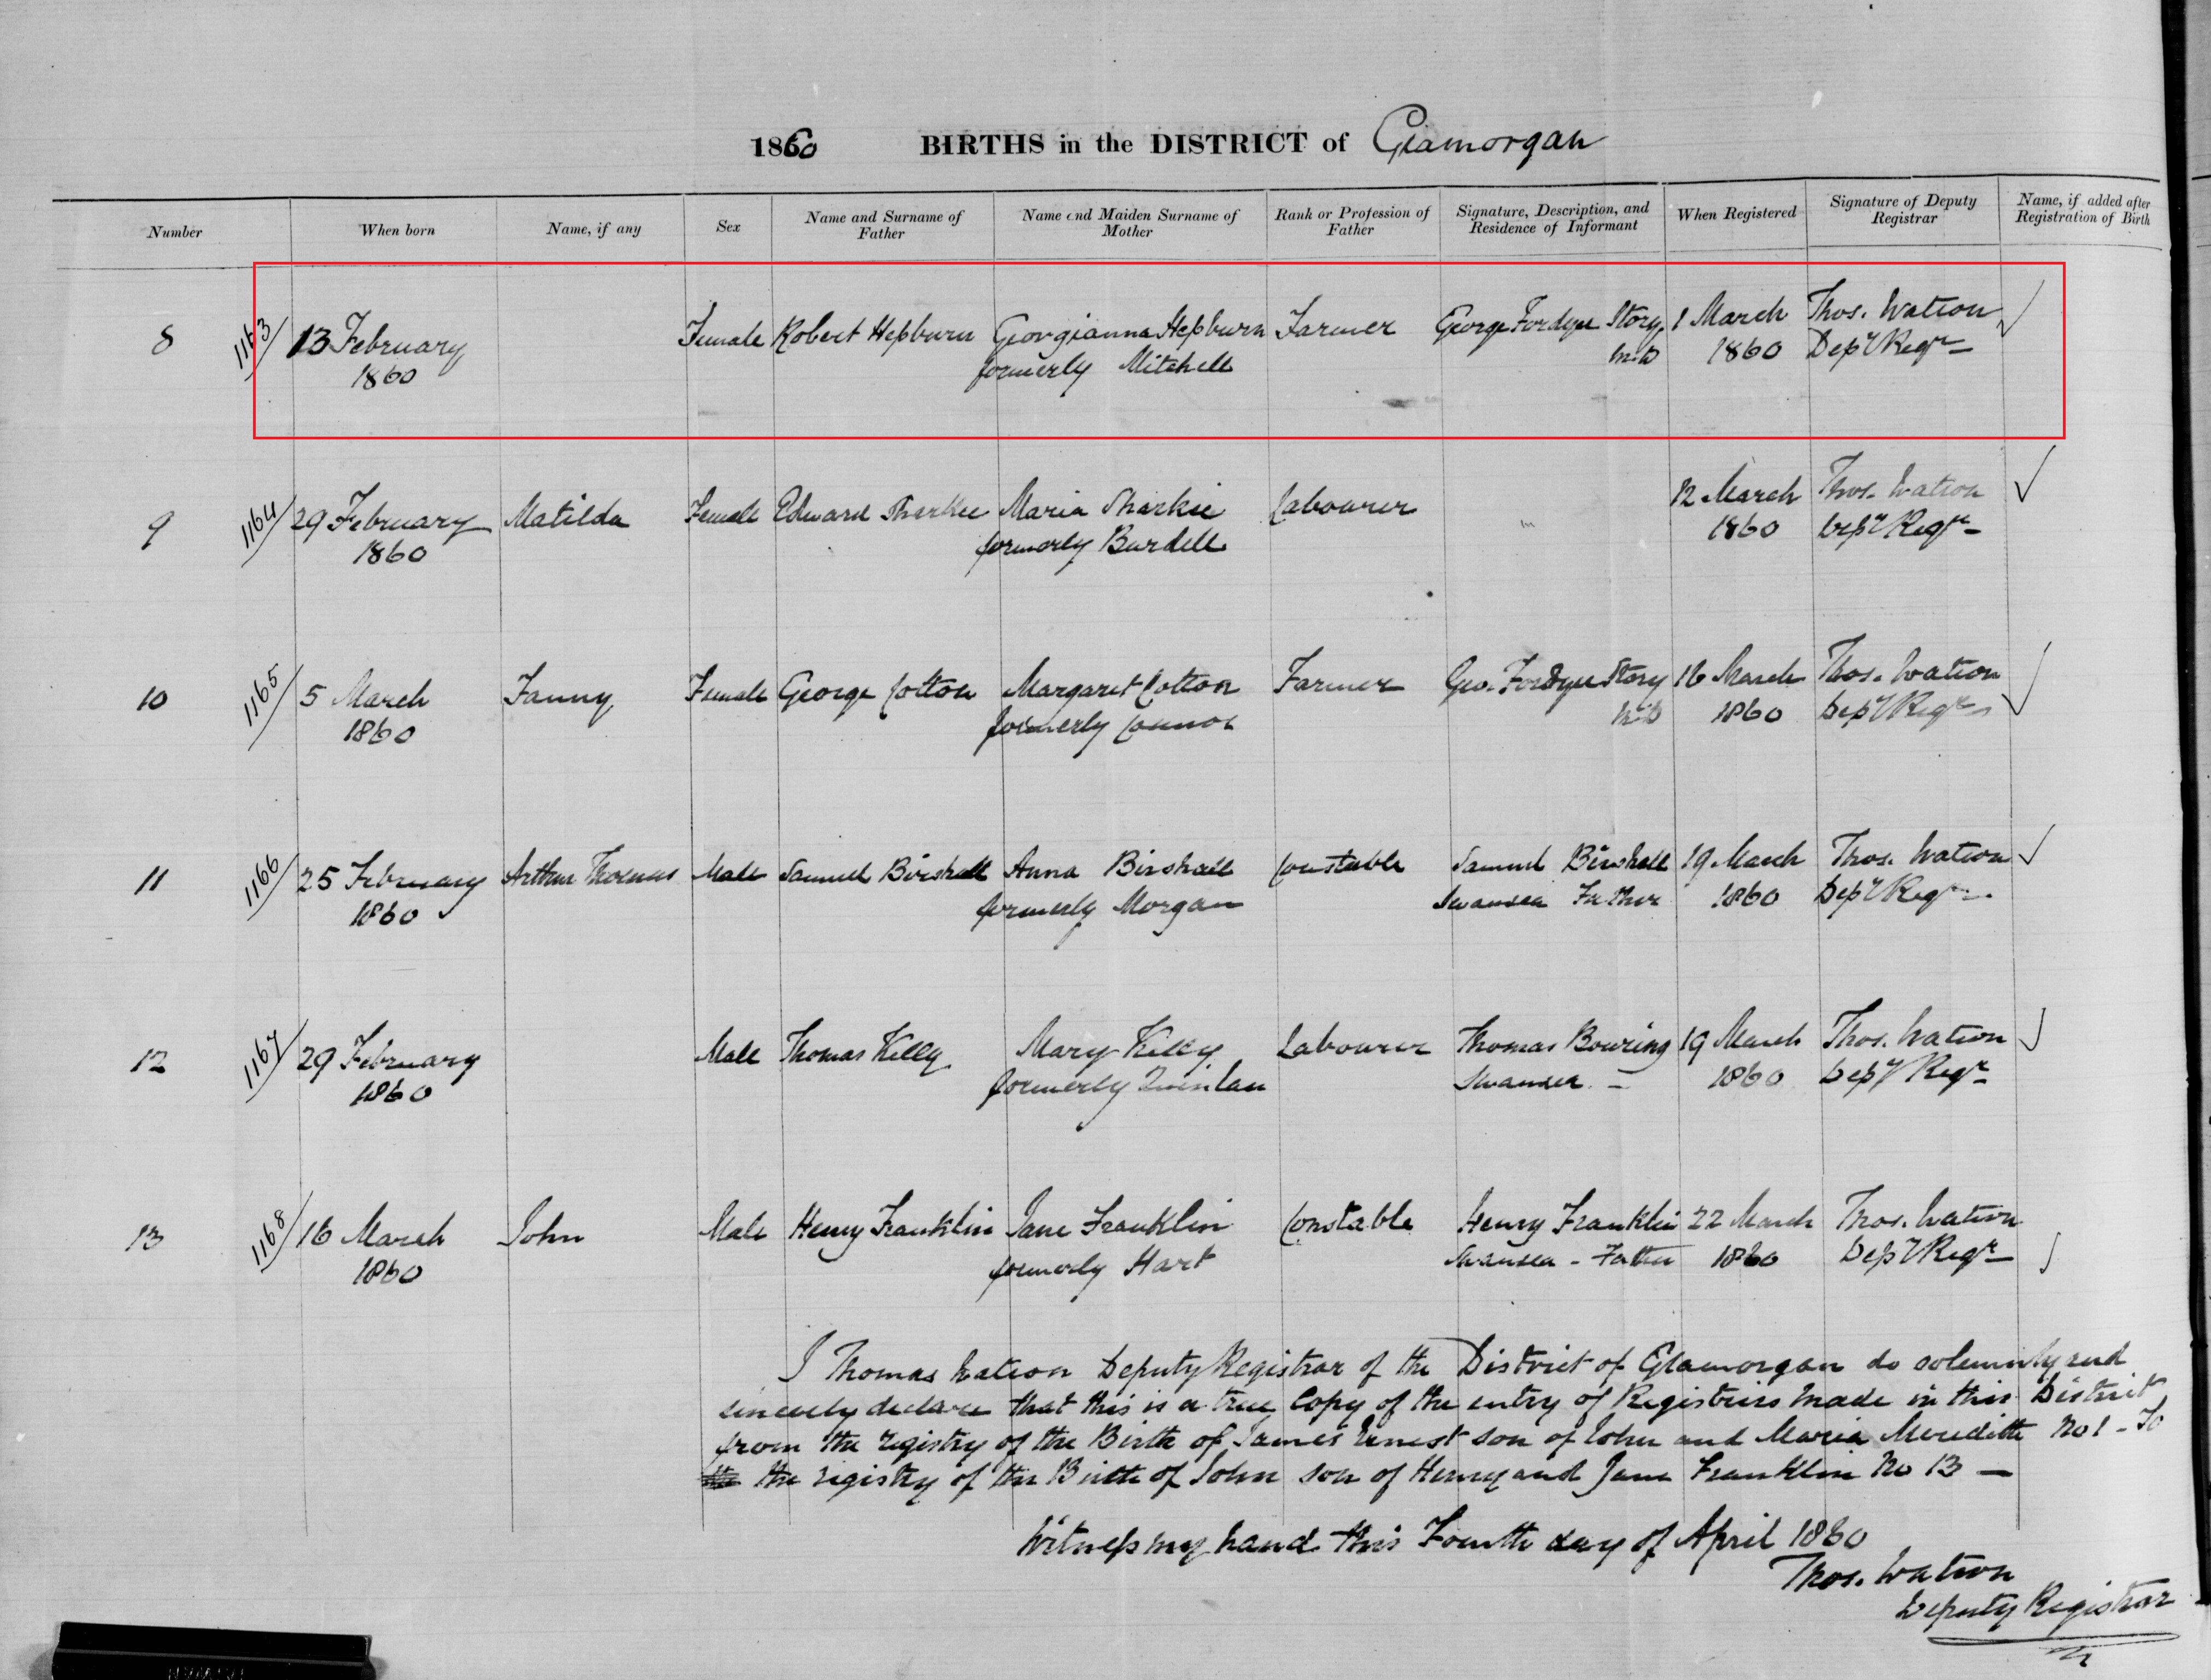 1860 BIRTHS in the DISTRICT of Glamorgan
Number When born Name, if any Sex Name and Surname of Father Name and Maiden Surname of Mother Rank or Profession of Father Signature, Description, and Residence of Informant When Registered Signature of Deputy Registrar Name, if added after Registration of Birth
8 1163/ 13 February Female Robert Hepburn Georgianna Hepburn Farmer George Fordyce Story, 1 March Thos. Watson
1860 formerly Mitchell M.D 1860 Depy Regr
9 1164/ 29 February Matilda Female Edward Sharkie Maria Sharkie Labourer 12 March Thos. Watson
1860 formerly Burdell 1860 Depy Regr
10 1165/ 5 March Fanny Female George Cotton Margaret Cotton Farmer Geo. Fordyce Story 16 March Thos. Watson
1860 formerly Connor M.D 1860 Depy Regr
11 1166/ 25 February Arthur Thomas Male Samuel Birshall Anna Birshall Constable Samuel Birshall 19 March Thos. Watson
1860 formerly Morgan Swansea Father 1860 Depy Regr
12 1167/ 29 February Male Thomas Kelly Mary Kelly Labourer Thomas Bowring 19 March Thos. Watson
1860 formerly Quinlan Swansea 1860 Depy Regr
13 1168/ 16 March John Male Henry Franklin Jane Franklin Constable Henry Franklin 22 March Thos. Watson
1860 formerly Hart Swansea - Father 1860 Depy Regr
I Thomas Watson Deputy Registrar of the District of Glamorgan do solemnly and
sincerely declare that this is a true Copy of the entry of Registries made in this District
from the registry of the Birth of James Ernest son of John and Maria Meredith No 1 - To
the registry of the Birth of John son of Henry and Jane Franklin No 13 —
Witness my hand this Fourth day of April 1860
Thos. Watson
Deputy Registrar